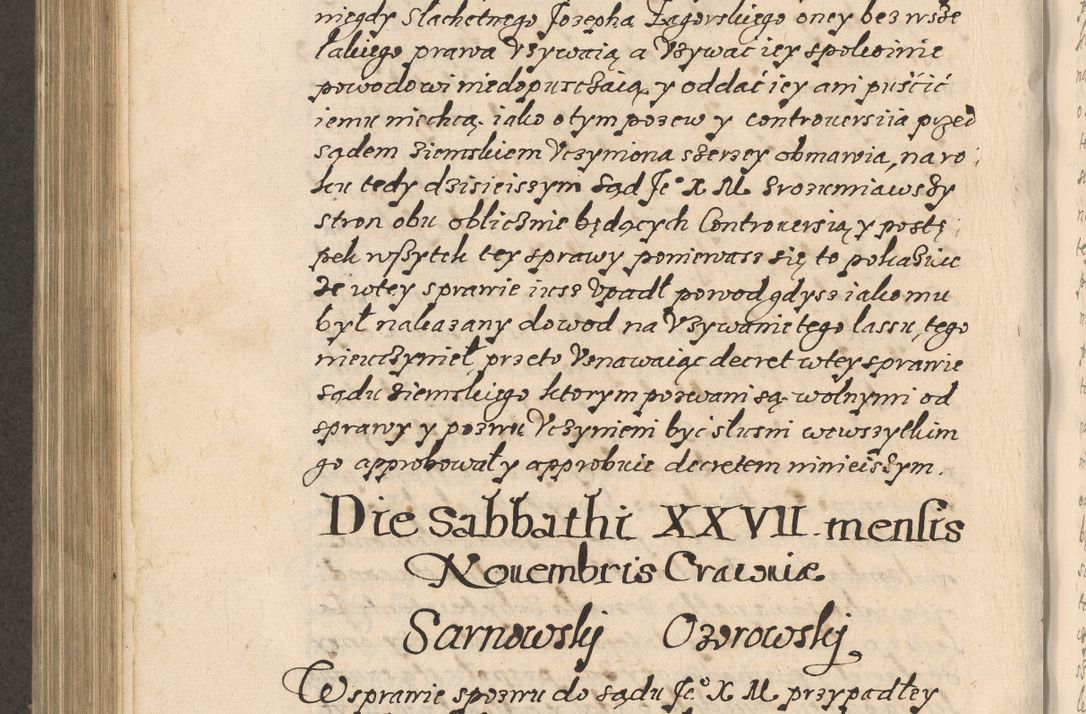 niegdy Slachetnego Jozepha Zagorskiego oney bez wsze
lakiego prawa Vzywaią a Vzywać iey spokoinie
powodowi niedopuszczaią, y oddać iey ani puścić
iemu niechcą. iako o tym pozew y controuersiia przed
sądem ziemskiem Vczyniona szerzey obmawia, na ro
ku tedy dzisieiszym Sąd Je° X M zrozumiawszy
stron obu oblicznie będących Controuersią, y postę
pek wszytek tey sprawy poniewasz się to pokazuie
ze w tey sprawie iusz Vpadł powod gdysz iako mu
był nakazany dowod na Vzywanie tego lassu, tego
nieuczynieł, przeto Vznawaiąc decret w tey sprawie
sądu ziemskiego ktorym pozwani są wolnymi od
sprawy y pozwu Vczynieni być słusni we wszytkim
go approbował y approbuie decretem ninieiszym.
Die Sabbathi XXVII. mensis
Nouembris Cracouiæ
Sarnowskij Ozorowskij
W sprawie z pozwu do sądu Je° X M przypadłey